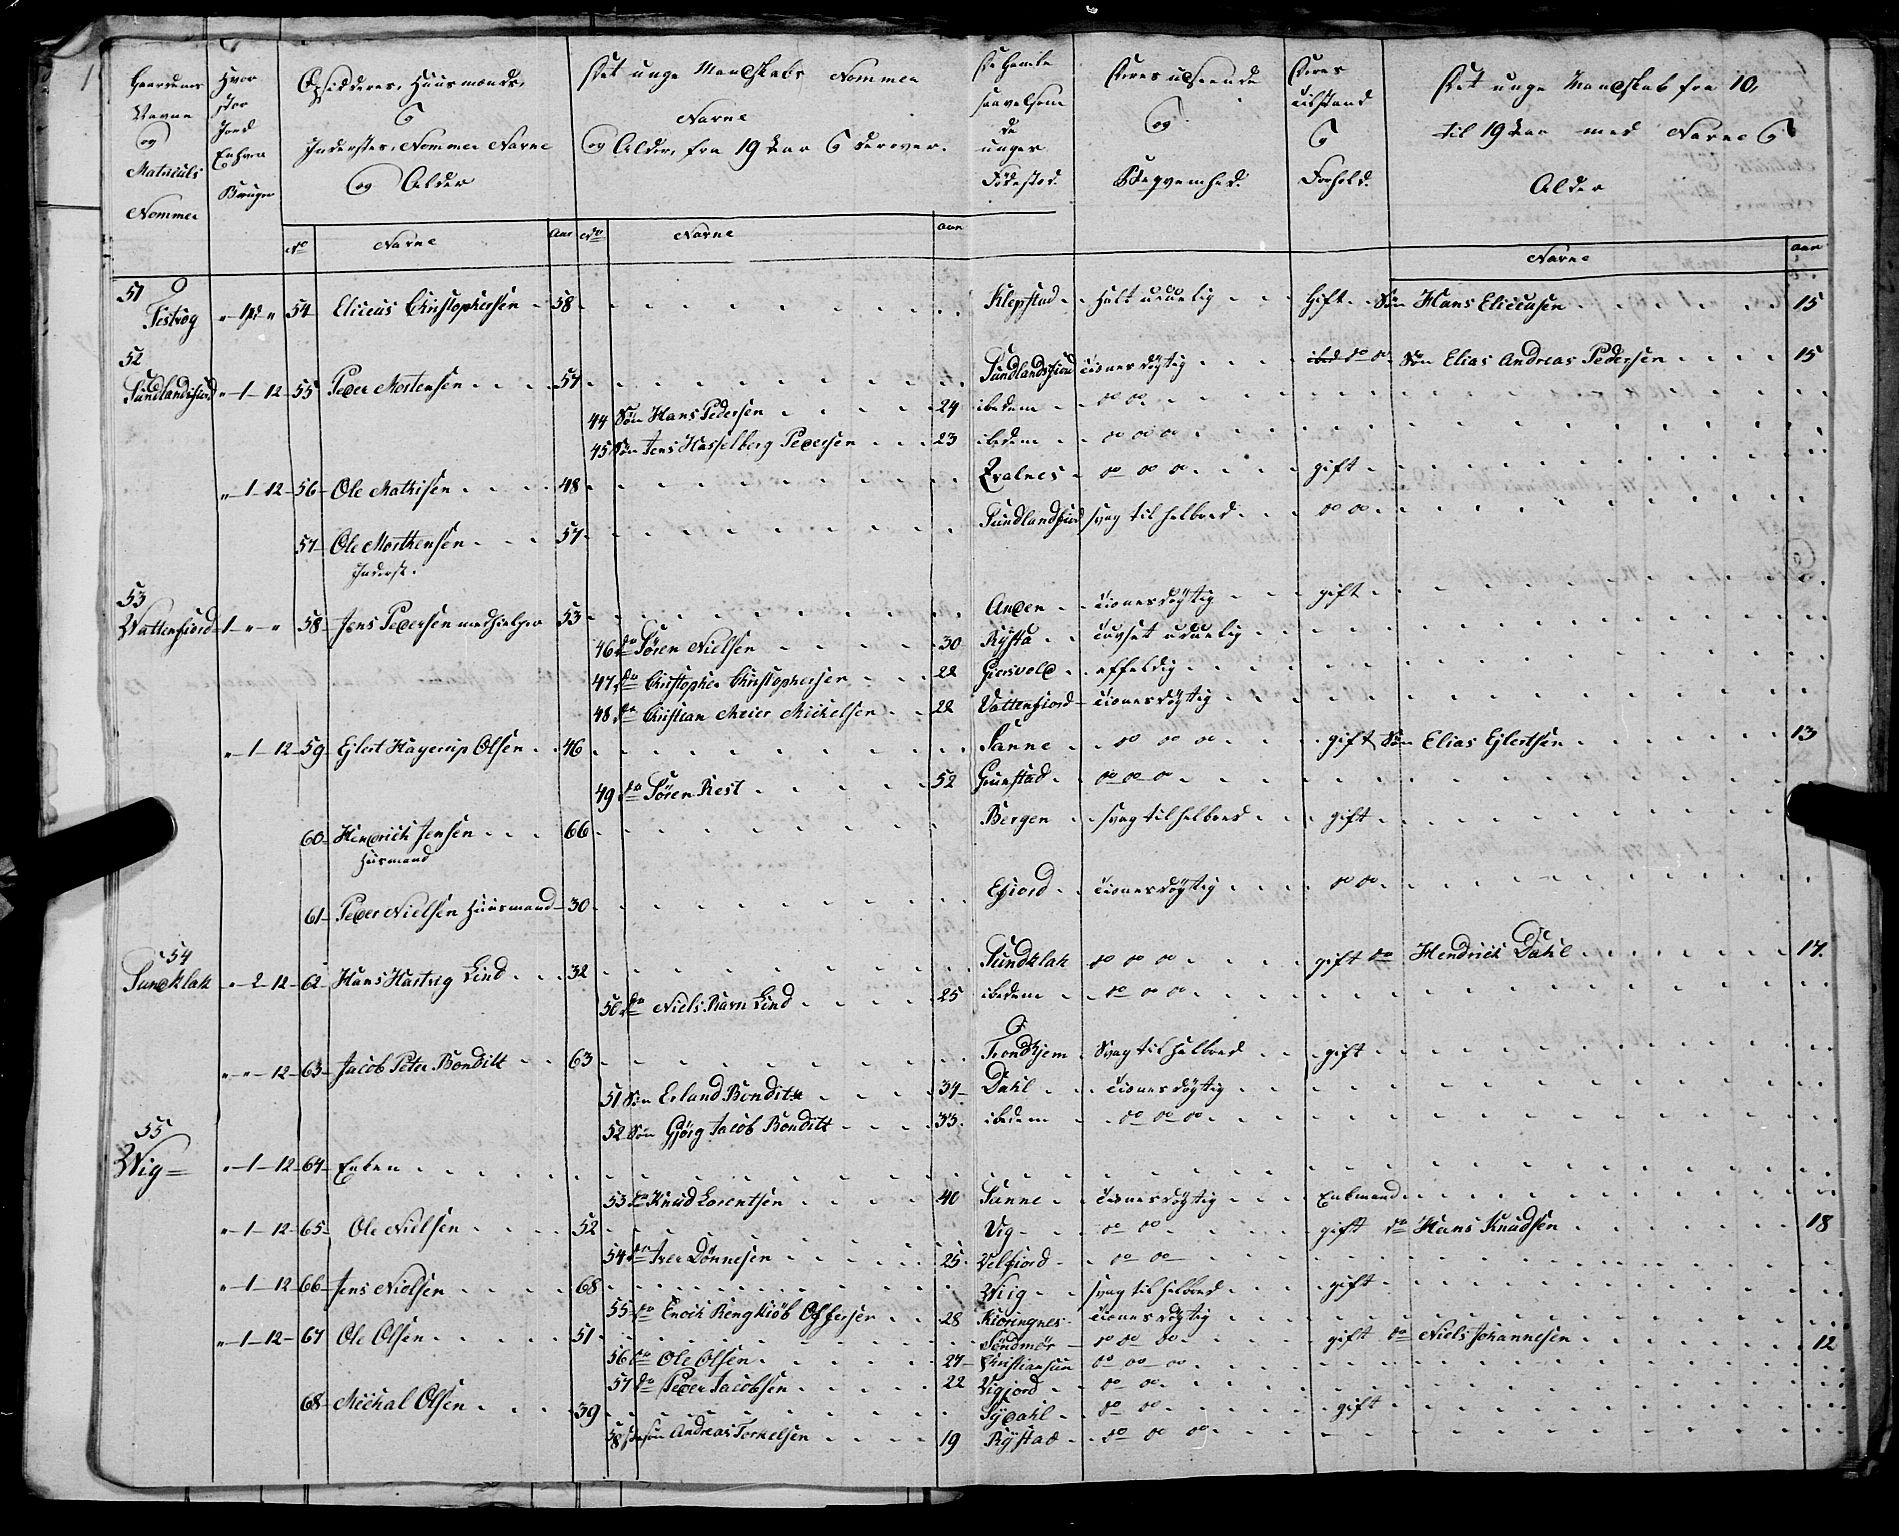 Gaardenes Navne og Matriculs Nommer
Hvor stor Jord Enhver Bruger
Opsidderes, Huusmænds, & Indersters, Nommer Navne og Alder
Det unge Mandskabs Nommer Navne og Alder, fra 19 Aar & derover.
De Gamle saavelsom de unges Fødested.
Deres udseende og Beqvemhed.
Deres tilstand & Forhold.
Det unge Mandskab fra 10, til 19 Aar med Navne & Alder
No Navne Aar No Navne Aar Navne Aar
51
54 Eliceus Christophersen 58 Klepstad halt uduelig Gift Søn Hans Elieeusen 15
52
Sundlandsfiord 1 12 55 Peder Mortensen 57 Sundlandsfiord tienesdøgtig do Søn Elias Andreas Pedersen 15
44 Søn Hans Pedersen 24 ibedem do do
45 Søn Jens Hasselberg Pedersen 23 ibedem do do
1 12 56 Ole Mathisen 48 Qvalnes do do gift
57 Ole Morthensen 57 Sundlandsfiord svag til helbred do do
Inderst.
53
Wattenfiord 1 " " 58 Jens Pedersen medhielper 53 Anden tienesdøgtig gift
46 do Søren Nielsen 30 Rysta uduelig
47 do Christopher Christophersen 22 Giersvold affeldig
48 do Christian Meier Mickelsen 22 Vattenfiord tienesdøgtig
1 12 59 Ejlert Hagerup Olsen 46 Sanne do do gift Søn Elias Ejlertsen 13
49 do Søren Rest 52 Grunstad do do
60 Hendrich Jensen 66 Bergen svag til helbred gift
Husmand
61 Peder Nielsen Huusmand 30 Efiord tienesdøgtig do do
54
Sundklak 2 12 62 Hans Hartvig Lind 32 Sundklak do do gift do Hendrich Dahl 17.
50 do Niels Ravn Lind 25 ibedem do do
" " 12 63 Jacob Peter Bonditt 63 Trondhjem Svag til helbred gift
51 Søn Erland Bonditt 34 Dahl tienesdøgtig
52 Søn Gjørg Jacob Bonditt 33. ibedem do do
55
Wig 1 12 64 Enken
53 do Knud Lorentsen 40 Sanne tienesdøgtig Enkmand
1 12 65 Ole Nielsen 52 Vig do do gift do Hans Knudsen 18
54 do Iver Dønnesen 25 Velfiord do do
1 12 66 Jens Nielsen 68 Wiig svag til helbred gift
55 do Enoch Rengkiøb Offersen 28 Kiøringnes tienesdøgtig
1 12 67 Ole Olsen 51 Søndmør do do gift do Niels Johannesen 12
56 do Ole Olsen 27 Christiansun do do
57 do Peder Jacobsen 22 Vigjord do do
68 Michal Olsen 39 Sÿdahl do do gift
58 Andreas Torkelsen 19 Rÿstad do do